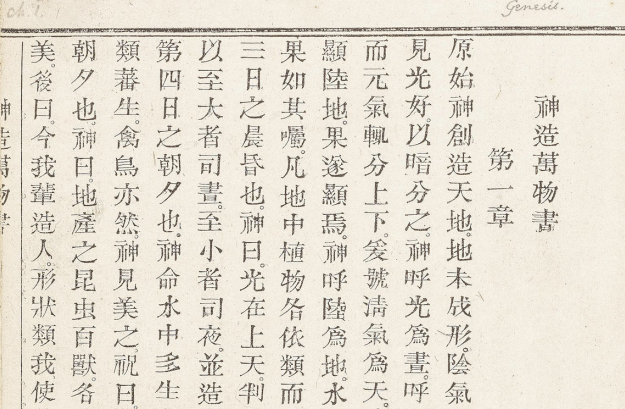 ch. 1.
Genesis.
神造萬物書
第一章
原始神創造天地。地未成形。陰氣
見光好。以暗分之。神呼光爲晝。呼
而元氣輒分上下。爰號淸氣爲天。
顯陸地。果遂顯焉。神呼陸爲地。水
果如其囑。凡地中植物各依類而
三日之晨昏也。神曰。光在上天。判
以至大者司晝。至小者司夜。並造
第四日之朝夕也。神命水中多生
類蕃生。禽鳥亦然。神見美之。祝曰。
朝夕也。神曰。地產之昆虫百獸。各
美。後曰。今我輩造人。形狀類我。使
神造萬物書